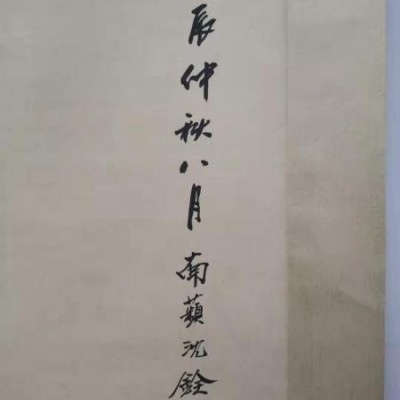 辰仲秋八月南蘋沈銓